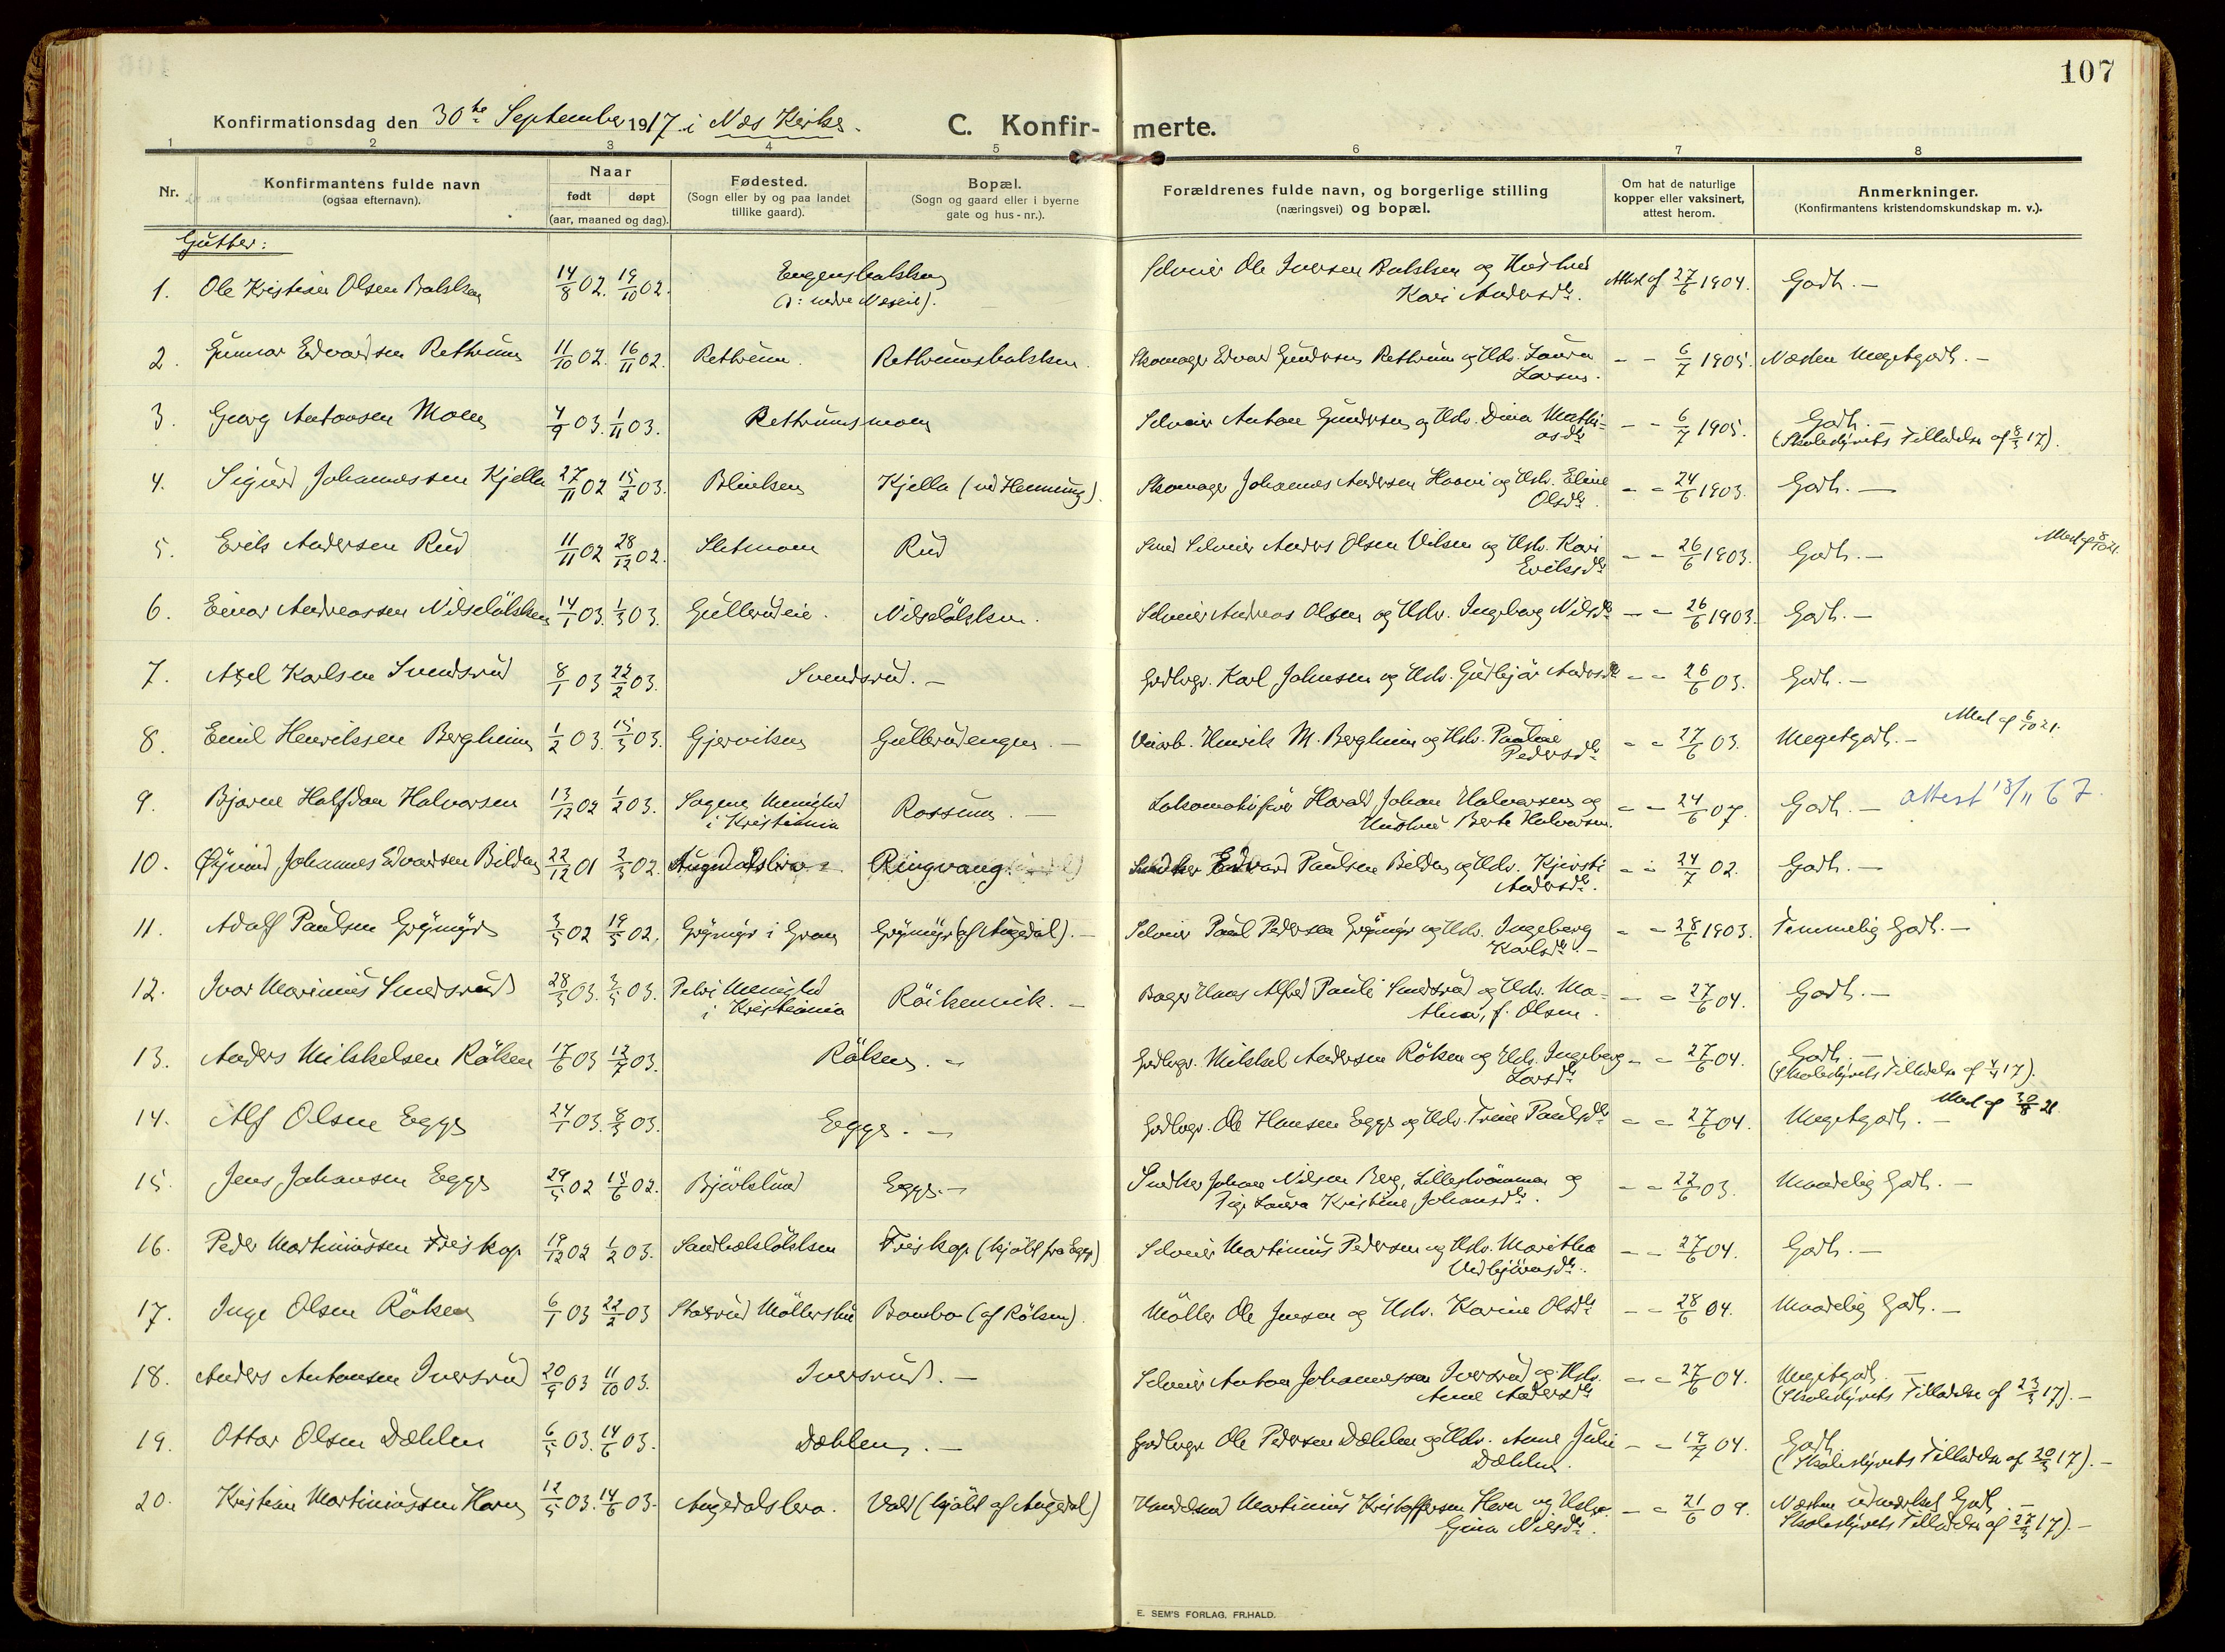 107
Konfirmationsdag den 30te September 1917 i Næs Kirke.
C. Konfir- merte.
1 2 3 4 5 6 7 8
Nr.
Konfirmantens fulde navn
(ogsaa efternavn).
Naar
født døpt
(aar, maaned og dag).
Fødested.
(Sogn eller by og paa landet
tillike gaard).
Bopæl.
(Sogn og gaard eller i byerne
gate og hus - nr.).
Forældrenes fulde navn, og borgerlige stilling
(næringsvei) og bopæl.
Om hat de naturlige
kopper eller vaksinert,
attest herom.
Anmerkninger.
(Konfirmantens kristendomskundskap m. v.).
Gutter:
1. Ole Kristian Olsen Bakken 14/8 02. 19/10 02. Engensbakken
Selveier Ole Iversen Bakken og Hustru
Kari Andersdtr. Attest af 27/6 1904. Godt. —
2. Gunnar Edvardsen Rethrum 11/10 02. 16/11 02. Rethrum. Rethrumsbakken.
Skomager Edvard Gundersen Rethrum og Hstr. Laura
Larsen. - - 6/7 1905. Næsten Megetgodt. —
3. Georg Antonsen Moen 4/9 03. 1/11 03. Rethrumsmoen
Selveier Anton Gundersen og Hstr. Dina Mathi-
asdtr. - - 6/7 1905. Godt. —
(Skolestyrets Tilladelse af 8/3 17).
4. Sigurd Johannessen Kjella 27/11 02 15/2 03. Blinken Kjella (ved Henning).
Skomager Johannes Andersen Hoovi og Hstr. Eline
Olsdtr. - - 24/6 1903. Godt. —
5. Erik Andersen Rud 11/11 02 28/12 02. Sletmoen Rud
Smed Selveier Anders Olsen Vilsen og Hstr. Kari
Eriksdtr. - - 26/6 1903. Godt. —
6. Einar Andreassen Nilseløkken 14/1 03. 1/3 03. Gullerudeie. Nilseløkken.
Selveier Andreas Olsen og Hstr. Ingeborg Nilsdtr. - - 26/6 1903. Godt. —
7. Axel Karlsen Svendsrud 8/1 03 22/2 03. Svendsrud. —
Gordbrgr. Karl Johnsen og Hstr. Gudbjør Andersdtr. - - 26/6 03. Godt. —
8. Emil Henriksen Bergheim 1/2 03. 15/3 03. Gjerviken Gullerudengen. —
Veiarb. Henrik M. Bergheim og Hstr. Pauline
Pedersdtr. - - 27/6 03. Megetgodt. —
9. Bjarne Halfdan Halvorsen 13/12 02 1/2 03. Sagene Menighed
i Kristiania Rossum. —
Lokomotivfører Harald Johan Halvorsen og
Hustru Berte Halvorsen. - - 24/6 07. Godt. — attest 18/11 67.
10. Øivind Johannes Edvardsen Bilden 22/12 01 2/3 02. Augedalsbro Ringvang
Edvard Paulsen Bilden og Hstr. Kjersti
Andersdtr. - - 24/7 02. Godt. —
11. Adolf Paulsen Grymyr 3/5 02 19/5 02. Grymyr i Gran Grymyr (af Augedal). —
Selveier Paul Pedersen Grymyr og Hstr. Ingeborg
Karlsdtr. — - - 28/6 1903. Temmelig Godt. —
12. Ivar Marinius Smedsrud 28/3 03. 3/5 03. Petri Menighed
i Kristiania Röikenvik. —
Bager Hans Alfred Pauli Smedsrud og Hstr. Ma-
thea, f. Olsen. - - 27/6 04. Godt. —
13. Anders Mikkelsen Röken 17/6 03 12/7 03. Röken. —
Gordbrgr. Mikkel Andersen Röken og Hstr. Ingeborg
Larsdtr. - - 27/6 04. Godt. —
(Skolestyrets Tilladelse af 4/4 17).
14. Alf Olsen Egge 24/1 03. 8/3 03. Egge. —
Gordbrgr. Ole Hansen Egge og Hstr. Trine Paulsdtr. - - 27/6 04. Megetgodt. —
15. Jens Johansen Egge 29/5 02 15/6 02. Bjørklund Egge. —
Snedker Johan Nilsen Berg, Lillestrømmen og
Pige Laura Kristine Johansdtr. - - 22/6 03. Maadelig Godt. —
16. Peder Martiniussen Friskop 19/12 02 1/2 03. Sandbæksløkken Friskop (kjøbt fra Egge)
Selveier Martinius Pedersen og Hstr. Maritha
Vedbjørnsdtr. - - 27/6 04. Godt. —
17. Inge Olsen Röken 6/1 03 22/2 03 Staxrud Møllerstue Bombo (af Röken).
Møller Ole Jensen og Hstr. Karine Olsdtr. - - 28/6 04. Maadelig Godt. —
18. Anders Antonsen Iversrud 20/9 03 11/10 03. Iversrud. —
Selveier Anton Johannessen Iversrud og Hstr.
Anne Andersdtr. - - 27/6 04. Megetgodt. —
(Skolestyrets Tilladelse af 23/3 17). —
19. Ottar Olsen Dæhlen 6/5 03. 14/6 03. Dæhlen. —
Gordbrgr. Ole Pedersen Dæhlen og Hstr. Anne Julie
Dæhlen. - - 19/7 04. Godt
(Skolestyrets Tilladelse af 20/3 17). —
20. Kristian Martiniussen Horn 12/5 03. 14/6 03. Augedalsbro. Vold (kjøbt af Augedal)
Handelsmd Martinius Kristoffersen Horn og Hstr.
Gina Nilsdtr. - - 21/6 09. Næsten udmerket Godt —
Skolestyrets Tilladelse af 27/3 17). —
E. SEM'S FORLAG, FR.HALD.